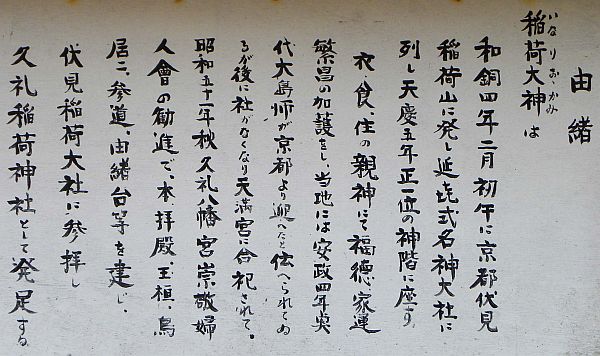 由緒
稲荷大神は
いなりおゝかみ
和銅四年二月初午に京都伏見
稲荷山に発し延㐂式名神大社に
列し天慶五年正一位の神階に座す
衣、食、住の親神にて福徳、家運
繁昌の加護をし、当地には安政四年頃
代大島師が京都より迎へたと伝へられてゐ
るが後に社がなくなり天満宮に合祀されて。
昭和五十一年秋久礼八幡宮崇敬婦
人會の勧進で、本、拝殿、玉桓、鳥
居二、参道、由緒台等を建じ、
伏見稲荷大社に参拝し
久礼稲荷神社として発足する